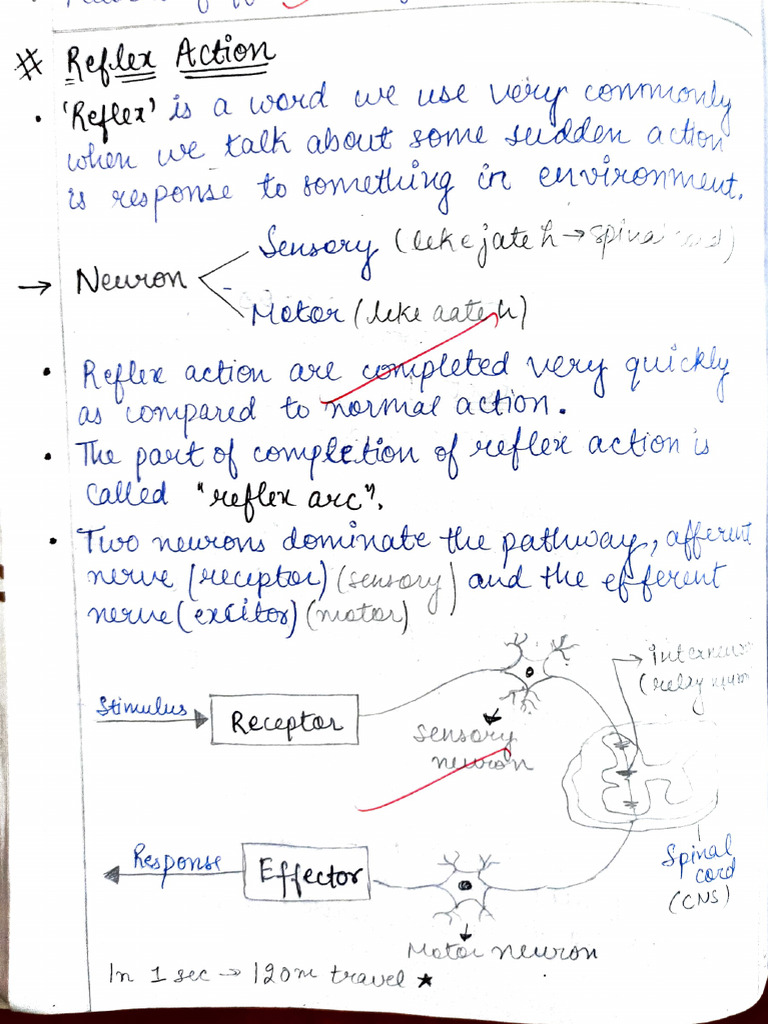 # Reflex Action
• 'Reflex' is a word we use very commonly
when we talk about some sudden action
is response to something in environment.
Sensory (leke jate h → spinal cord)
→ Neuron
Motor (leke aate h)
• Reflex action are completed very quickly
as compared to normal action.
• The part of completion of reflex action is
called "reflex arc".
• Two neurons dominate the pathway, afferent
nerve (receptor) (sensory) and the efferent
nerve (excitor) (motor)
Stimulus
Receptor
Sensory
neuron
(relay
Spinal
cord
(CNS)
Response
Effector
Motor neuron
In 1 sec → 120m travel ★